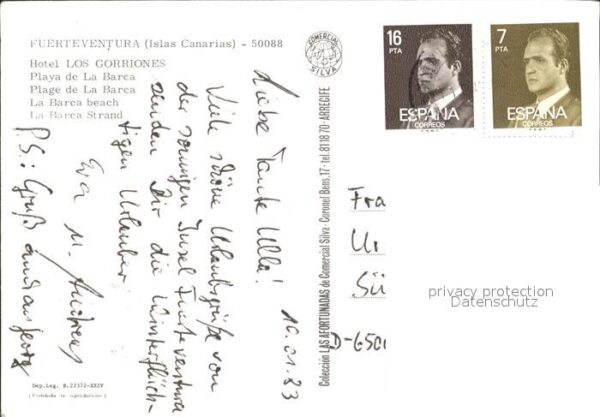 FUERTEVENTURA (Islas Canarias) - 50088
Hotel LOS GORRIONES
Playa de La Barca
Plage de La Barca
La Barca beach
La Barca Strand
COMERCIAL
SILVA
16
PTA
ESPAÑA
CORREOS
7
PTA
ESPAÑA
CORREOS
16.01.83
Liebe Tante Ulla!
Viele schöne Urlaubsgrüße von
der sonnigen Insel Fuerteventura
senden Dir die Winterflüch-
tigen Urlauber
Eva u. Andreas
PS: Gruß auch an Georg
Colección LAS AFORTUNADAS de Comercial Silva - Coronel Bens, 17 - tel. 81 18 70 - ARRECIFE
Fra
Ur
Sü
D-6500
privacy protection
Datenschutz
Dep. Leg. B. 22372-XXIV
(Prohibida la reproducción)